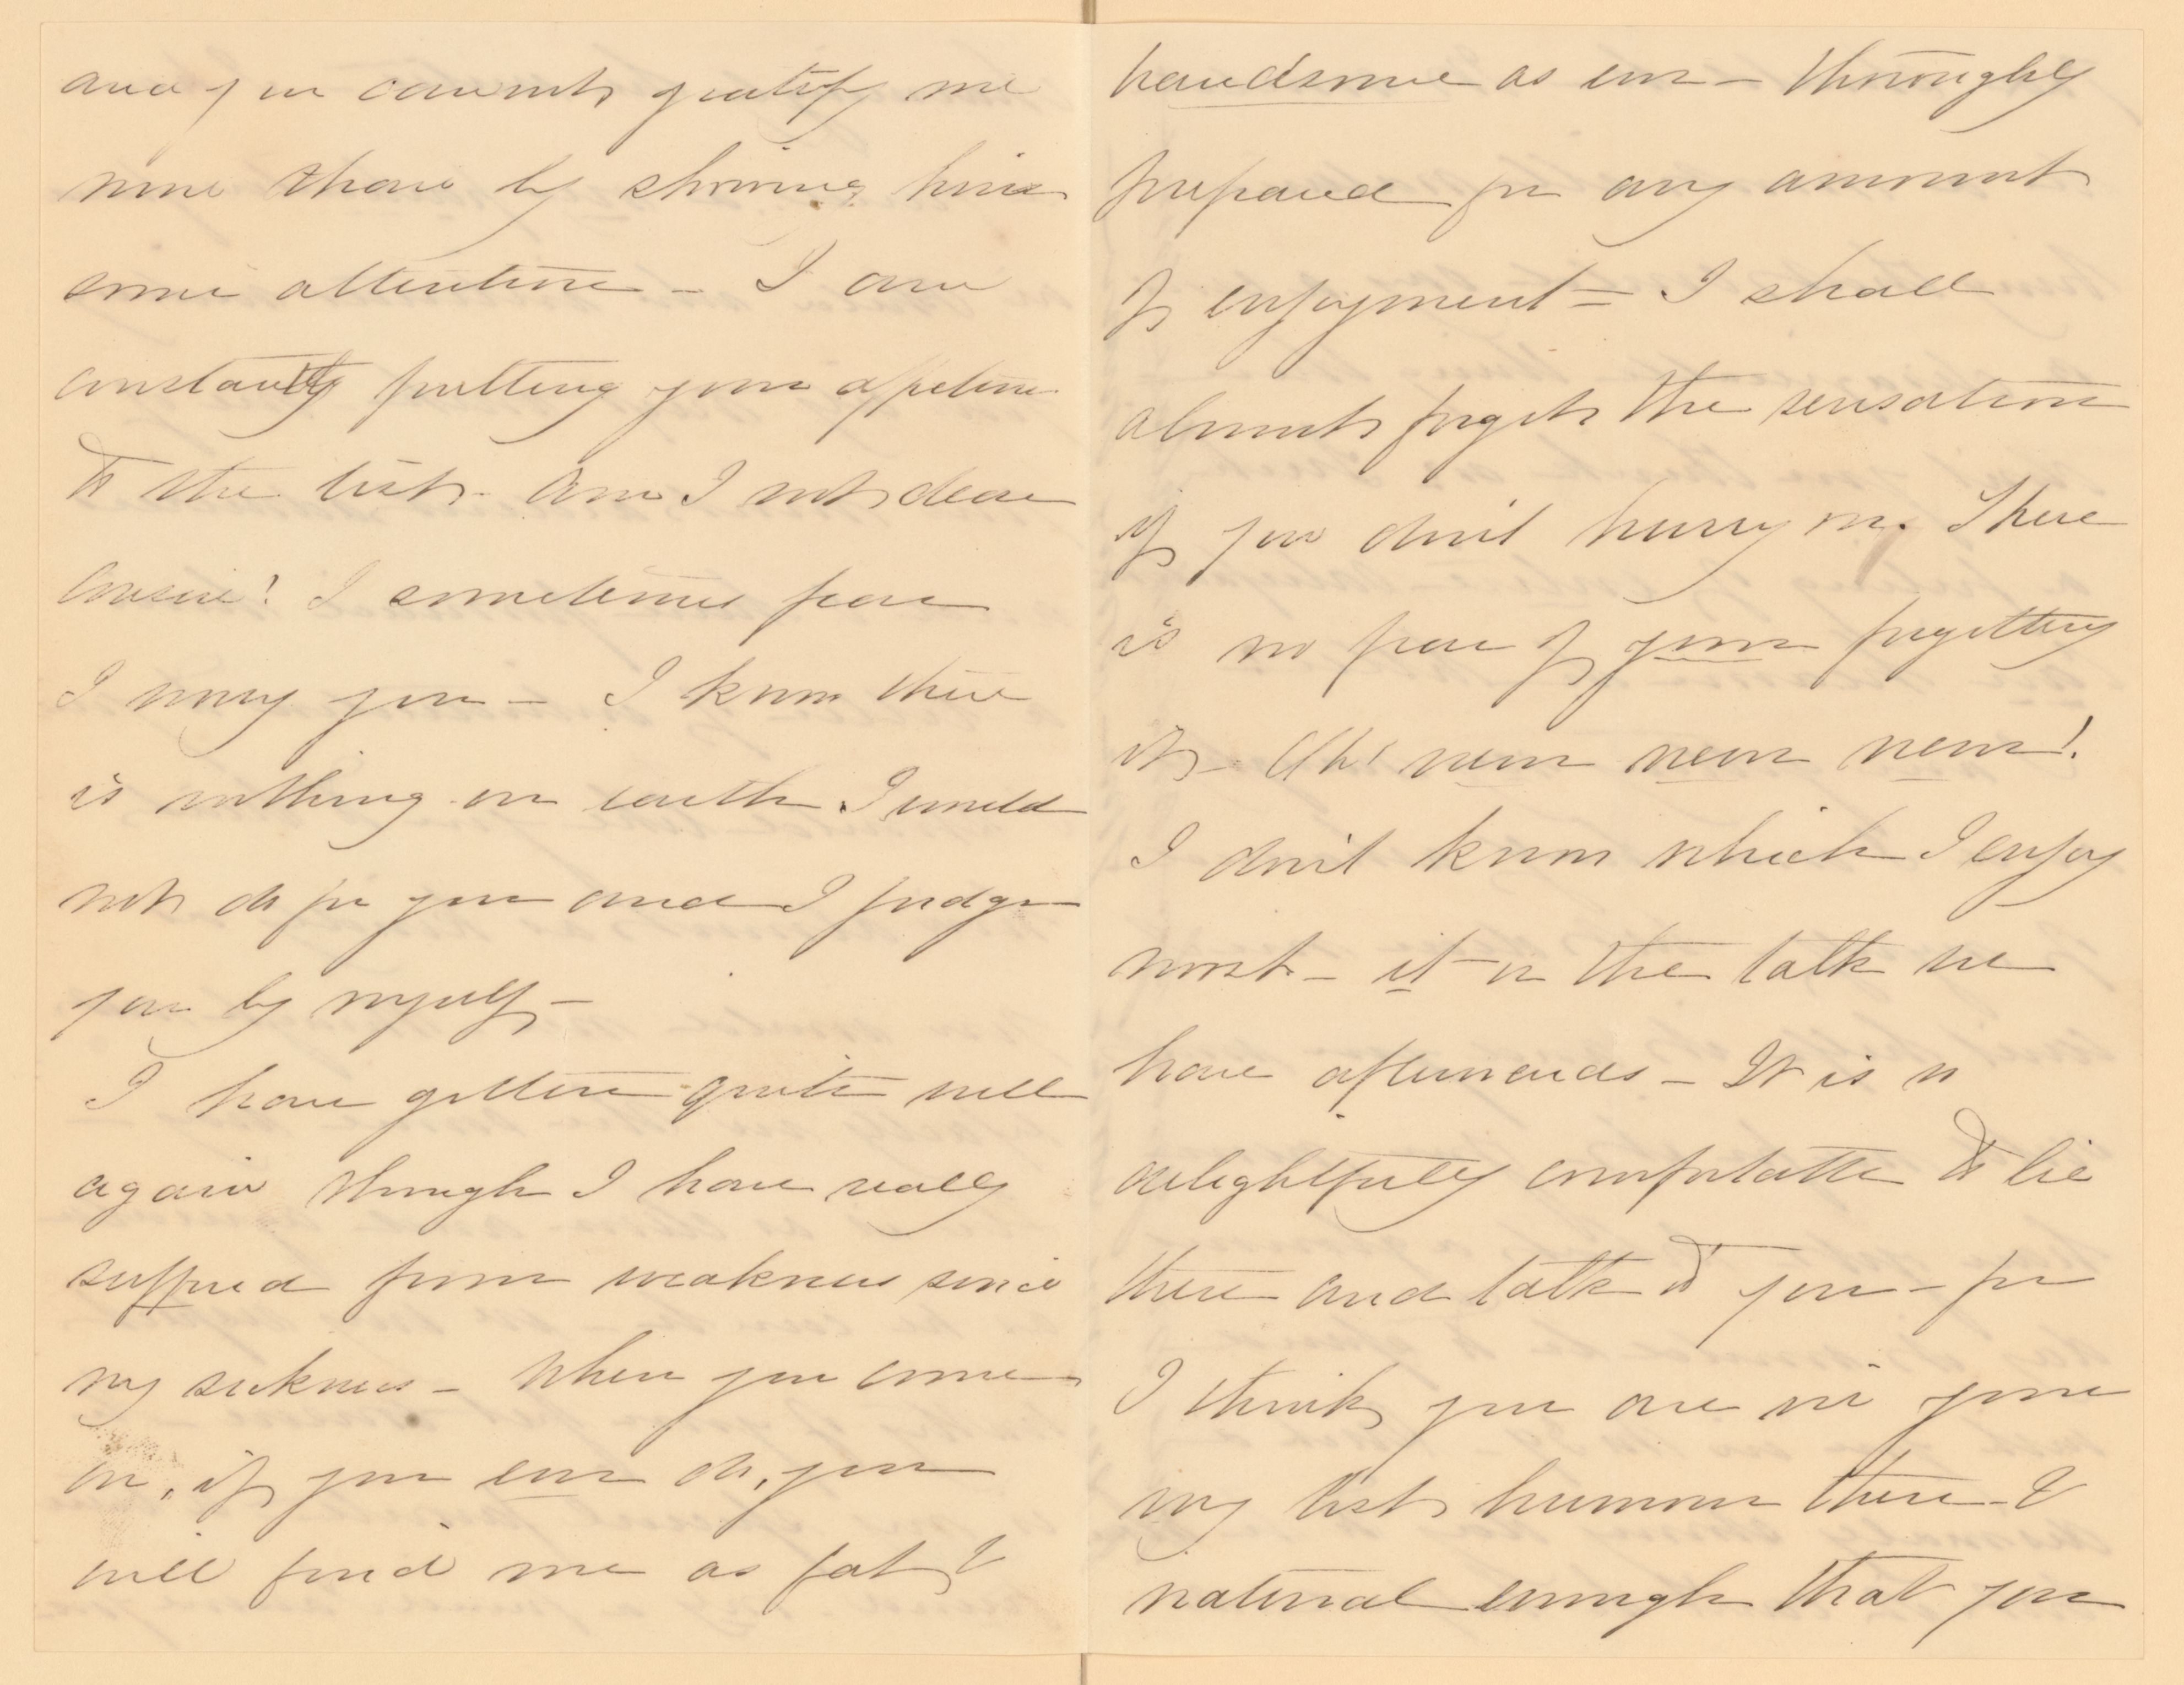 and you cannot gratify me
more than by showing him
some attention – I am
constantly putting your affection
to the test – Am I not dear
Cousin! I sometimes fear
I worry you – I know there
is nothing on earth I would
not do for you and I judge
you by myself –
I have gotten quite well
again though I have really
suffered from weakness since
my sickness – When you come
on, if you ever do, you
will find me as fat &
handsome as ever – thoroughly
prepared for any amount
of enjoyment – I shall
almost forget the sensation
if you don't hurry on. There
is no fear of your forgetting
it – Oh! never never never!
I don't know which I enjoy
most – it or the talk we
have afterwards – It is so
delightfully comfortable to lie
there and talk to you – for
I think you are in your
very best humour there – &
natural enough that you